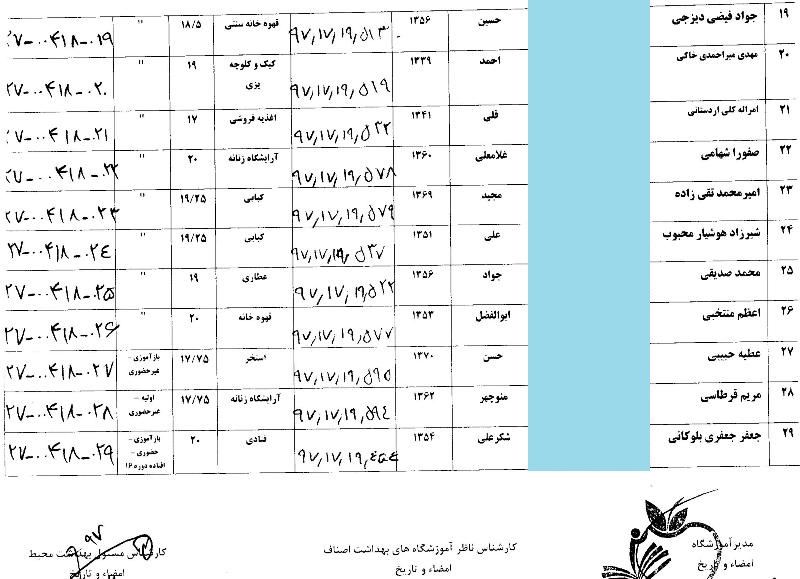 ۱۹ جواد فیضی دیزجی حسین ۱۳۵۶ ۹۷٫۱۷٫۱۹٫۵۱۳ قهوه خانه سنتی ۱۸/۵ " ۲۷-۰۰۴۱۸-۰۱۹
۲۰ مهدی میراحمدی خاکی احمد ۱۳۳۹ ۹۷٫۱۷٫۱۹٫۵۱۹ کیک و کلوچه پزی ۱۹ " ۲۷-۰۰۴۱۸-۰۲۰
۲۱ امراله کلی اردستانی قلی ۱۳۴۱ ۹۷٫۱۷٫۱۹٫۵۳۲ اغذیه فروشی ۱۷ " ۲۷-۰۰۴۱۸-۰۲۱
۲۲ صفورا شهامی غلامعلی ۱۳۶۰ ۹۷٫۱۷٫۱۹٫۵۷۸ آرایشگاه زنانه ۲۰ " ۲۷-۰۰۴۱۸-۰۲۲
۲۳ امیرمحمد تقی زاده مجید ۱۳۶۹ ۹۷٫۱۷٫۱۹٫۵۷۹ کبابی ۱۹/۲۵ " ۲۷-۰۰۴۱۸-۰۲۳
۲۴ شیرزاد هوشیار محبوب علی ۱۳۵۱ ۹۷٫۱۷٫۱۹٫۵۳۷ کبابی ۱۹/۲۵ " ۲۷-۰۰۴۱۸-۰۲٤
۲۵ محمد صدیقی جواد ۱۳۵۶ ۹۷٫۱۷٫۱۹٫۵۲۲ عطاری ۱۹ " ۲۷-۰۰۴۱۸-۰۲۵
۲۶ اعظم منتخبی ابوالفضل ۱۳۵۳ ۹۷٫۱۷٫۱۹٫۵۷۷ قهوه خانه ۲۰ " ۲۷-۰۰۴۱۸-۰۲۶
۲۷ عطیه حبیبی حسن ۱۳۷۰ ۹۷٫۱۷٫۱۹٫۵۹۵ استخر ۱۷/۷۵ بازآموزی - غیرحضوری ۲۷-۰۰۴۱۸-۰۲۷
۲۸ مریم قرطاسی منوچهر ۱۳۶۲ ۹۷٫۱۷٫۱۹٫۵۹٤ آرایشگاه زنانه ۱۷/۷۵ اولیه - غیرحضوری ۲۷-۰۰۴۱۸-۰۲۸
۲۹ جعفر جعفری بلوکاتی شکرعلی ۱۳۵۴ ۹۷٫۱۷٫۱۹٫ قنادی ۲۰ بازآموزی - حضوری - افتاده دوره ۱۶ ۲۷-۰۰۴۱۸-۰۲۹
مدیر آموزشگاه کارشناس ناظر آموزشگاه های بهداشت اصناف کارشناس مسئول بهداشت محیط
امضاء و تاریخ امضاء و تاریخ امضاء و تاریخ
۹۷